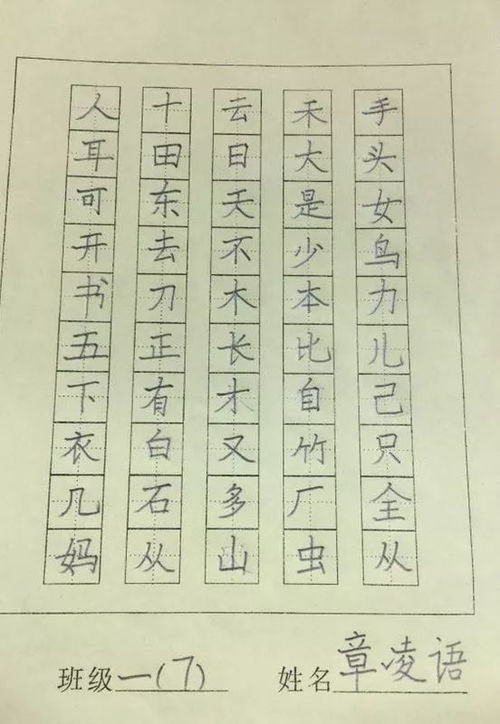 人 十 云 禾 手
耳 田 日 大 头
可 东 天 是 女
开 去 不 少 鸟
书 刀 木 本 力
五 正 长 比 儿
下 有 木 自 己
衣 白 又 竹 只
几 石 多 厂 全
妈 从 山 虫 从
班级一(7) 姓名章凌语